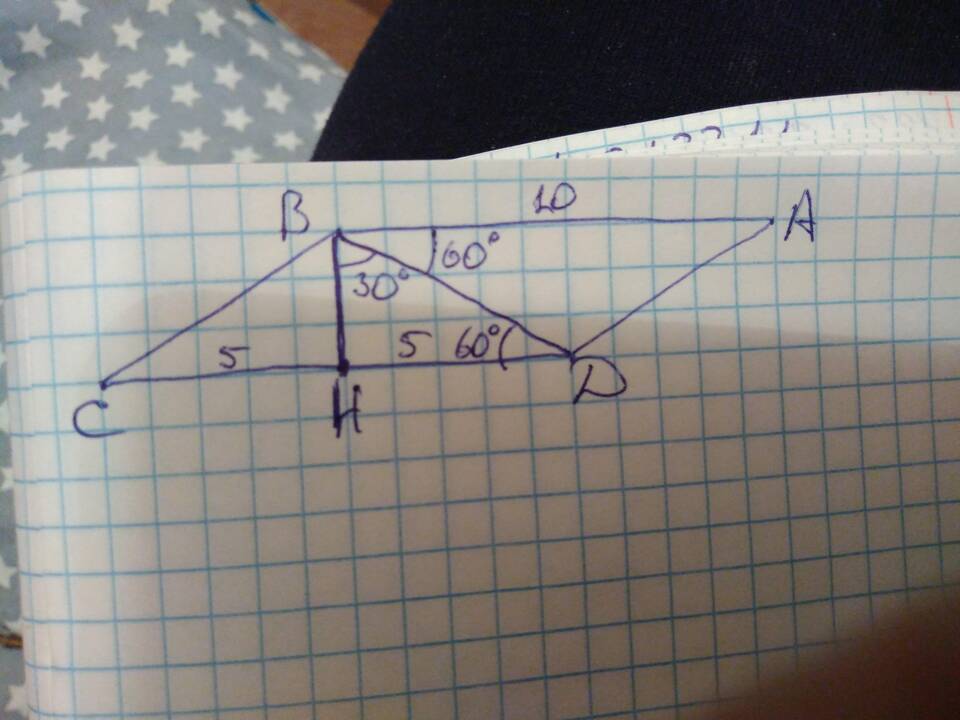 B 10 A
60°
30°
5 5 60°
C H D